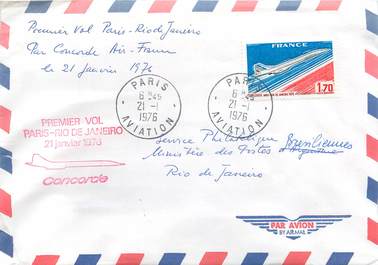 Premier Vol Paris-Rio de Janeiro
Par Concorde Air-France
le 21 Janvier 1976
FRANCE
1,70
PARIS
6 H 45
21-1
1976
AVIATION
PARIS
6 H 45
21-1
1976
AVIATION
PREMIER VOL
PARIS-RIO DE JANEIRO
21 janvier 1976
Concorde
Service Philatélique
Ministère des Postes Brésiliennes
Rio de Janeiro
PAR AVION
BY AIR MAIL